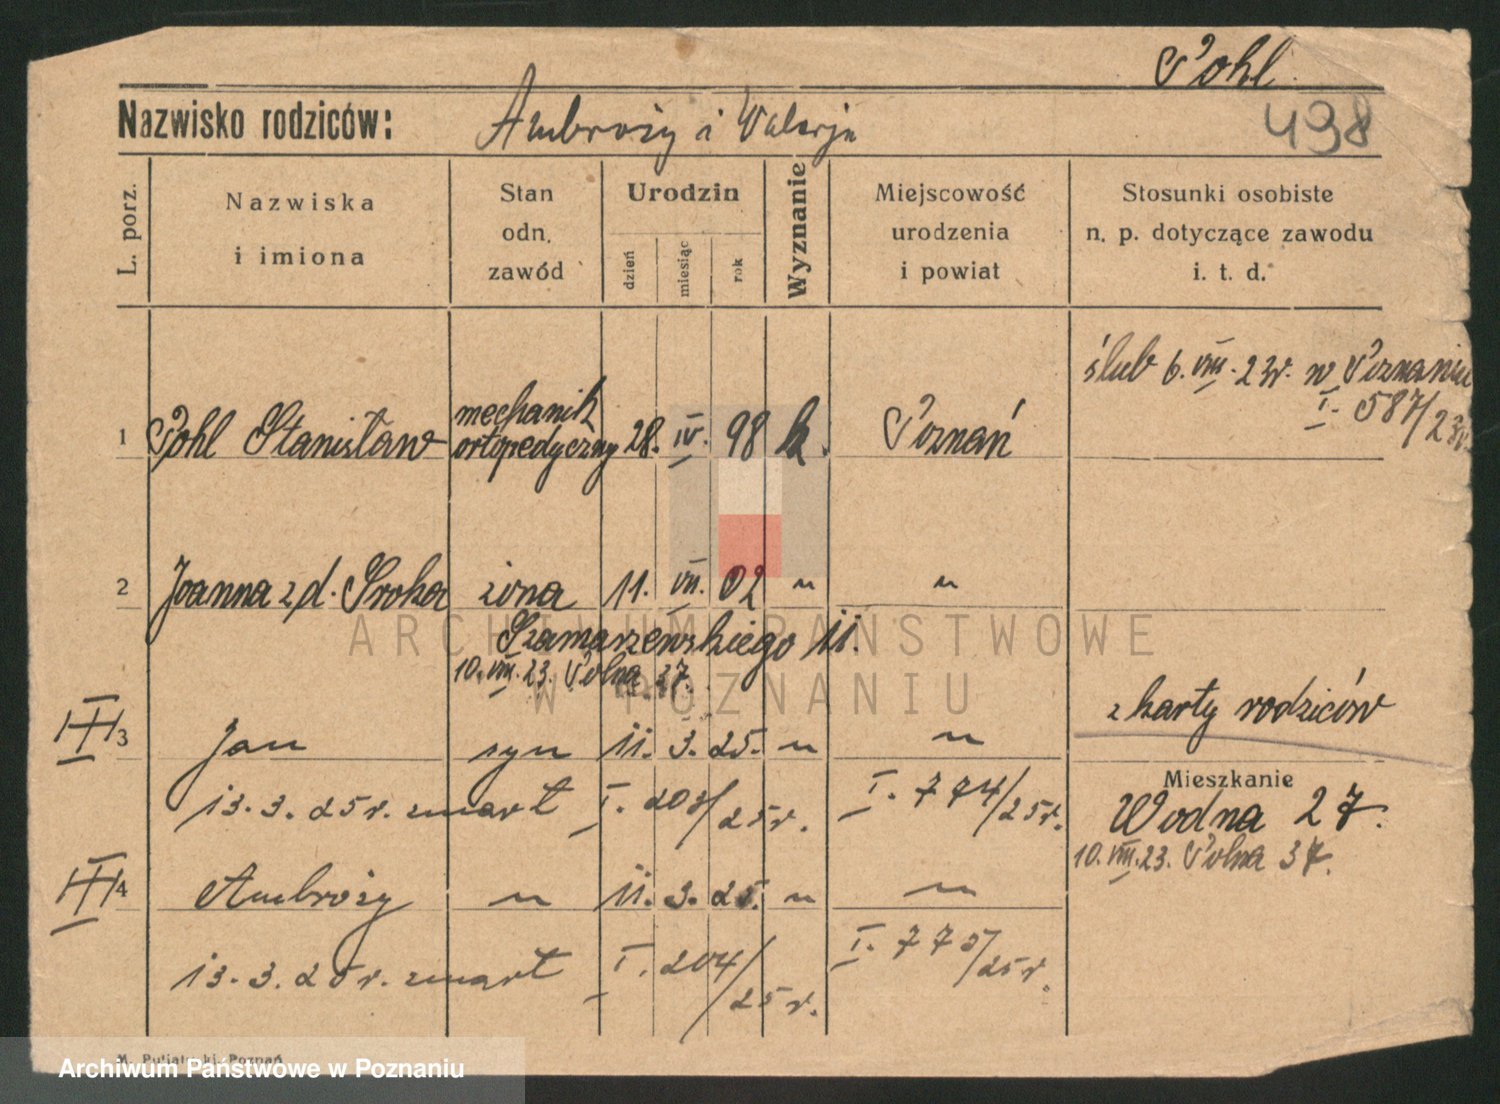 Pohl.
498
Nazwisko rodziców: Ambroży i Walerja
L. porz.
Nazwiska
i imiona
Stan
odn.
zawód
Urodzin
dzień
miesiąc
rok
Wyznanie
Miejscowość
urodzenia
i powiat
Stosunki osobiste
n. p. dotyczące zawodu
i. t. d.
ślub 6. VIII. 23r. w Poznaniu
I. 587/23r.
1 Pohl Stanisław mechanik ortopedyczny 28. IV. 98 k. Poznań
2 Joanna z d. Sroka żona 11. VII. 02 " "
Szamarzewskiego 11.
10. VIII. 23. Polna 37.
z karty rodziców
III 3 Jan syn 11. 3. 25. " "
13. 3. 25r. zmarł I. 203/25r. I. 774/25r.
Mieszkanie
Wodna 27.
10. VIII. 23. Polna 37.
III 4 Ambroży " 11. 3. 25. " "
13. 3. 25r. zmarł I. 204/25r. I. 775/25r.
ARCHIWUM PAŃSTWOWE
W POZNANIU
M. Putiatycki, Poznań
Archiwum Państwowe w Poznaniu